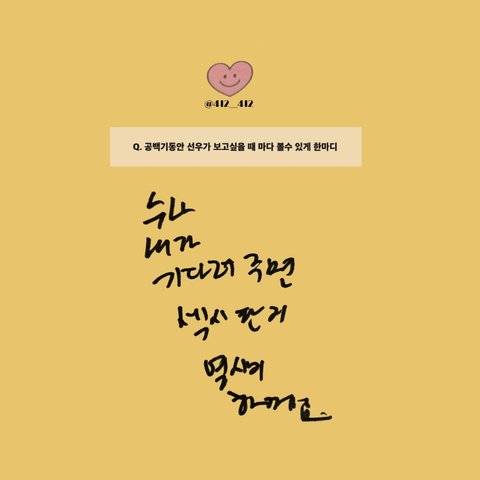 @412__412
Q. 공백기동안 선우가 보고싶을 때 마다 볼수 있게 한마디
누나
내가
기다려 주면
섹시